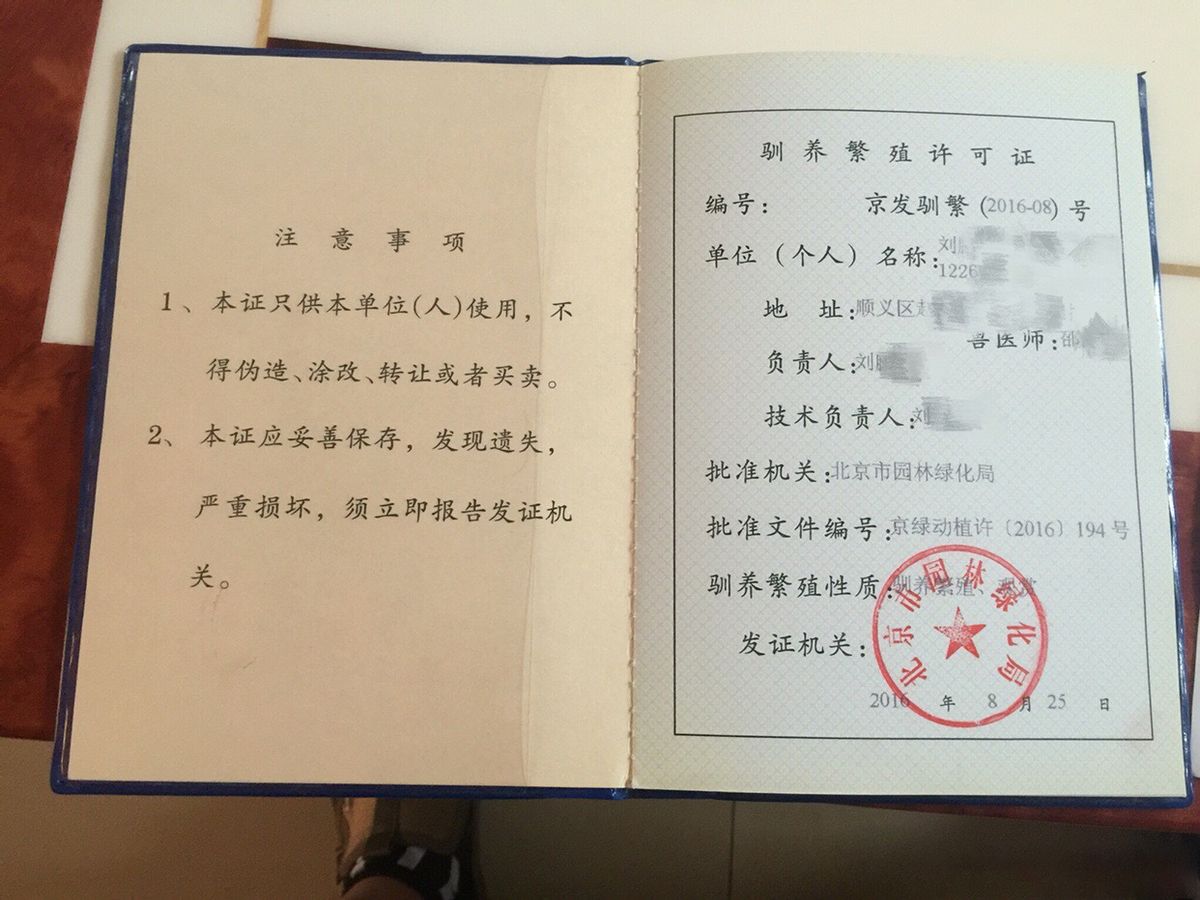 注意事项
1、本证只供本单位(人)使用，不
得伪造、涂改、转让或者买卖。
2、本证应妥善保存，发现遗失，
严重损坏，须立即报告发证机
关。
驯养繁殖许可证
编号： 京发驯繁(2016-08)号
单位（个人）名称：刘
1226
地 址：顺义区
兽医师：邵
负责人：刘
技术负责人：刘
批准机关：北京市园林绿化局
批准文件编号：京绿动植许〔2016〕194号
驯养繁殖性质：驯养繁殖、观赏
发证机关：
北京市园林绿化局
2016 年 8 月 25 日